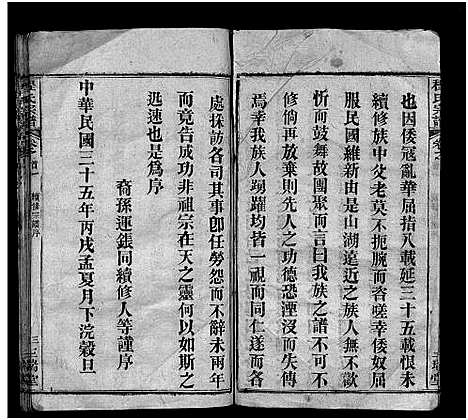 程氏宗譜
卷之
也因倭寇亂華屈指八載延三十五載未
續修族中父老莫不扼腕而沓嗟幸倭奴
服民國維新由是山湖遠近之族人無不歡
忻而鼓舞故團聚而言曰我族之譜不可不
修倘再放棄則先人之功德恐湮沒而失傳
焉幸我族人踴躍均皆一視而同仁遂而
處採訪各司其事卽任勞怨而不辭未兩年
而竟告成功非祖宗在天之靈何以如斯之
迅速也是為序
裔孫運錶同續修人等謹序
中華民國三十五年丙戌孟夏月下浣穀旦
氏宗譜
卷
首一
續修宗譜序
三
瑞堂